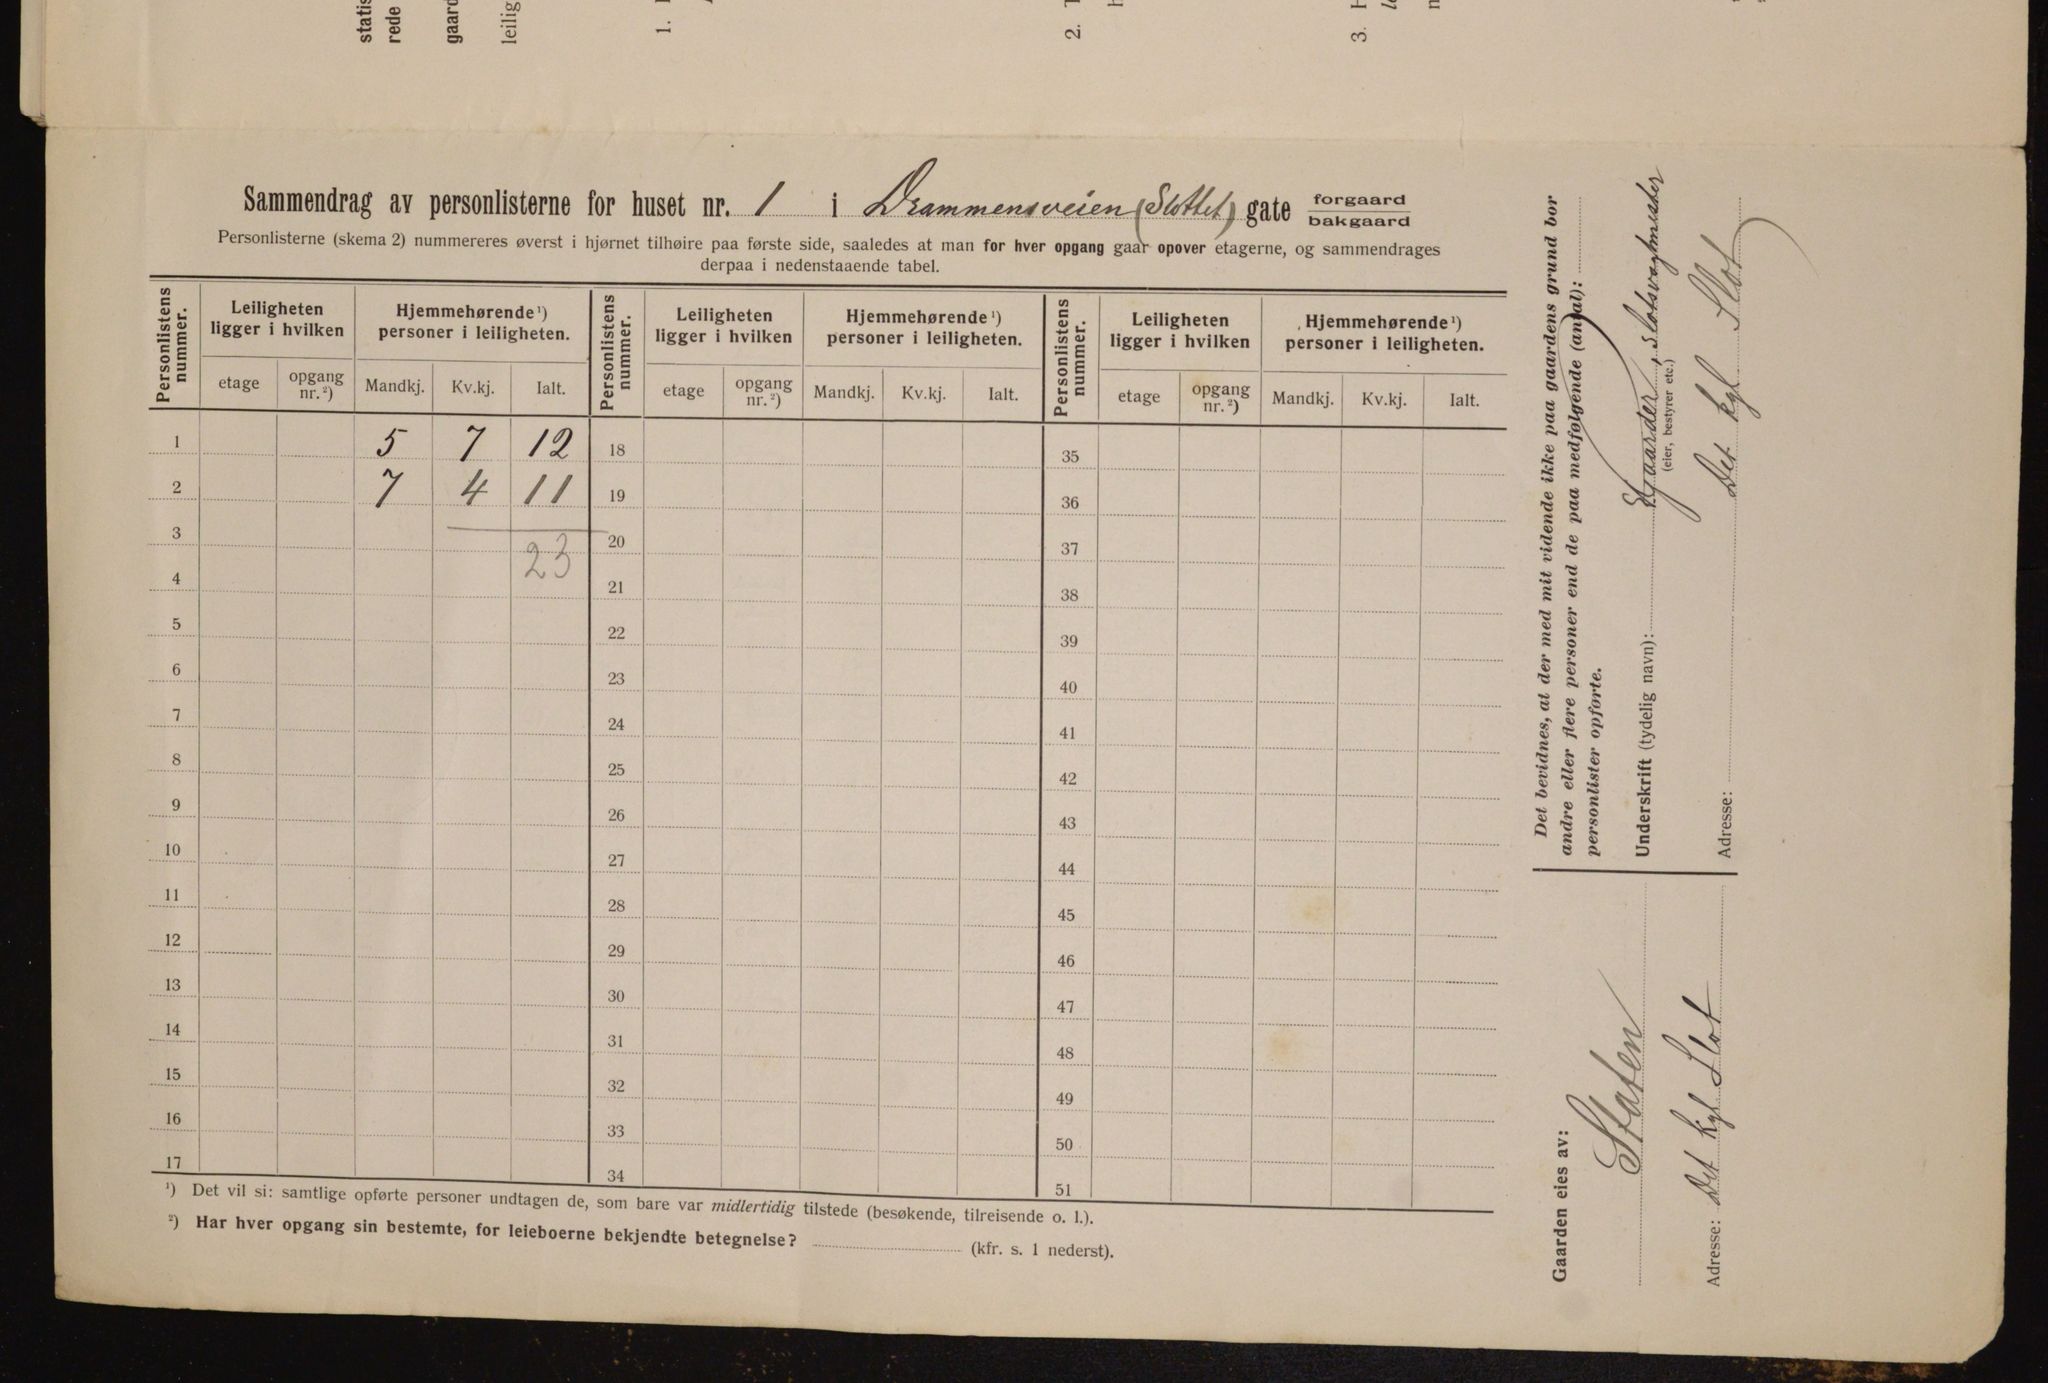 statis
rede
gaard
leilig
1.
2. T
h
3. H
Sammendrag av personlisterne for huset nr. 1 i Drammensveien (Slottet) gate forgaard
bakgaard
Personlisterne (skema 2) nummereres øverst i hjørnet tilhøire paa første side, saaledes at man for hver opgang gaar opover etagerne, og sammendrages
derpaa i nedenstaaende tabel.
Personlistens nummer. Leiligheten ligger i hvilken Hjemmehørende ¹) personer i leiligheten. Personlistens nummer. Leiligheten ligger i hvilken Hjemmehørende ¹) personer i leiligheten. Personlistens nummer. Leiligheten ligger i hvilken Hjemmehørende ¹) personer i leiligheten.
etage opgang nr. ²) Mandkj. Kv.kj. Ialt. etage opgang nr. ²) Mandkj. Kv.kj. Ialt. etage opgang nr. ²) Mandkj. Kv.kj. Ialt.
1 5 7 12 18 35
2 7 4 11 19 36
3 20 37
23
4 21 38
5 22 39
6 23 40
7 24 41
8 25 42
9 26 43
10 27 44
11 28 45
12 29 46
13 30 47
14 31 48
15 32 49
16 33 50
17 34 51
¹) Det vil si: samtlige opførte personer undtagen de, som bare var midlertidig tilstede (besøkende, tilreisende o. l.).
²) Har hver opgang sin bestemte, for leieboerne bekjendte betegnelse? (kfr. s. 1 nederst).
Det bevidnes, at der med mit vidende ikke paa gaardens grund bor
andre eller flere personer end de paa medfølgende (antal):
personlister opførte.
Underskrift (tydelig navn): Gaarder, Slotsvagtmester
(eier, bestyrer etc.)
Adresse: Det kgl Slot
Gaarden eies av:
Staten
Adresse: Det kgl Slot